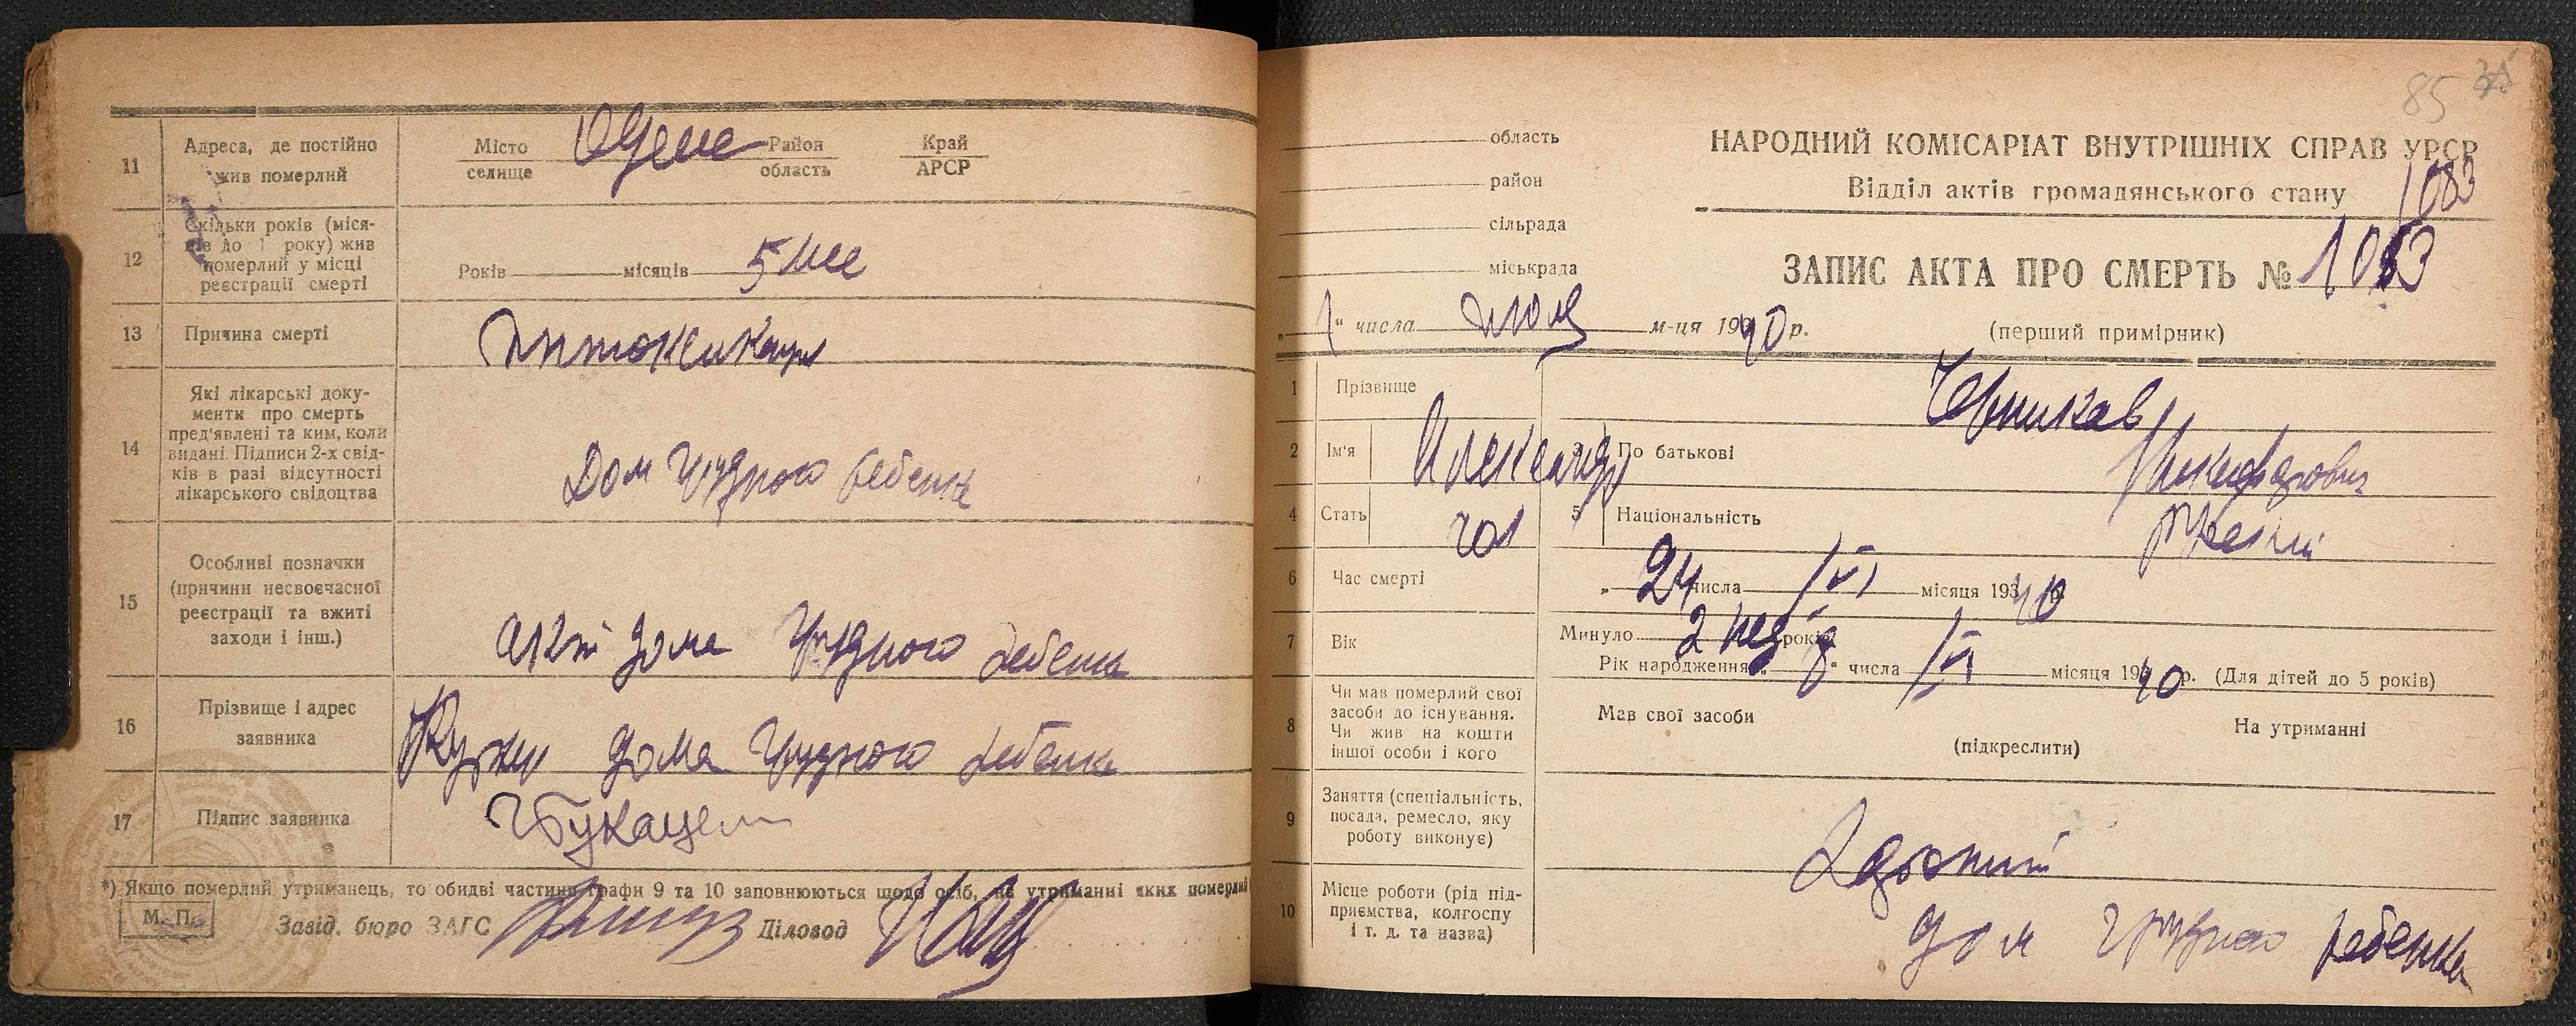 11 Адреса, де постійно жив померлий
Місто селище Одеса Район область Край АРСР
12 Скільки років (місяців до 1 року) жив померлий у місці реєстрації смерті
Років місяців 5
13 Причина смерті
Интоксикация
14 Які лікарські документи про смерть пред'явлені та ким, коли видані. Підписи 2-х свідків в разі відсутності лікарського свідоцтва
Дом грудного ребенка
15 Особливі позначки (причини несвоєчасної реєстрації та вжиті заходи і інш.)
акт дома грудного ребенка
16 Прізвище і адрес заявника
дома грудного ребенка
17 Підпис заявника
*) Якщо померлий утриманець, то обидві частини графи 9 та 10 заповнюються щодо осіб, на утриманні яких померлий
М. П. Завід. бюро ЗАГС Діловод
85
область
район
сільрада
міськрада
НАРОДНИЙ КОМІСАРІАТ ВНУТРІШНІХ СПРАВ УРСР
Відділ актів громадянського стану
1083
ЗАПИС АКТА ПРО СМЕРТЬ № 1083
„1“ числа июля м-ця 1940 р.
(перший примірник)
1 Прізвище
2 Ім'я Александр 3 По батькові
4 Стать чол 5 Національність русский
6 Час смерті
„24 числа VI місяця 1940 р.
7 Вік
Минуло 2 нед років
Рік народження „8“ числа VI місяця 1940 р. (Для дітей до 5 років)
8 Чи мав померлий свої засоби до існування. Чи жив на кошти іншої особи і кого
Мав свої засоби На утриманні
(підкреслити)
9 Заняття (спеціальність, посада, ремесло, яку роботу виконує)
10 Місце роботи (рід підприємства, колгоспу і т. д. та назва)
дом грудного ребенка